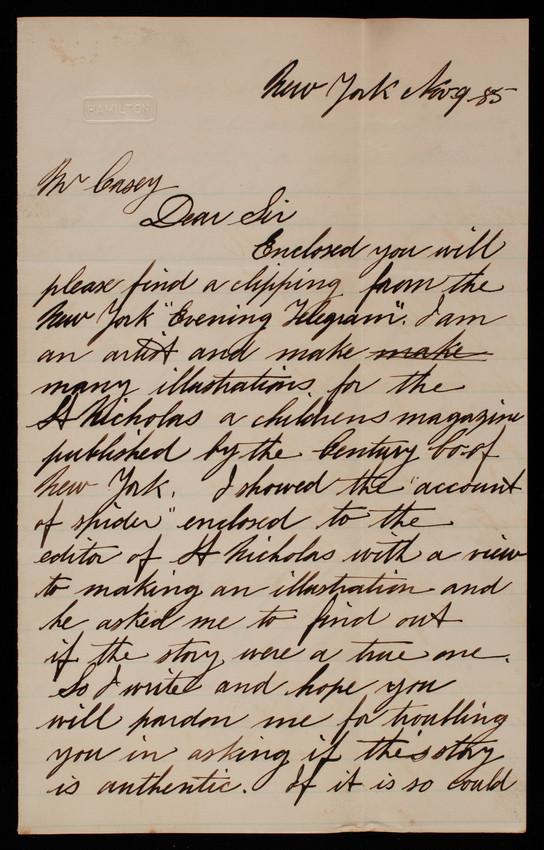 HAMILTON
New York Nov 9 - 85
Mr Casey
Dear Sir
Enclosed you will
please find a clipping from the
New York "Evening Telegram". I am
an artist and make make
many illustrations for the
St Nicholas a childrens magazine
published by the Century Co. of
New York. I showed the "account
of spider" enclosed to the
editor of St Nicholas with a view
to making an illustration and
he asked me to find out
if the story were a true one.
So I write and hope you
will pardon me for troubling
you in asking if this story
is authentic. If it is so could